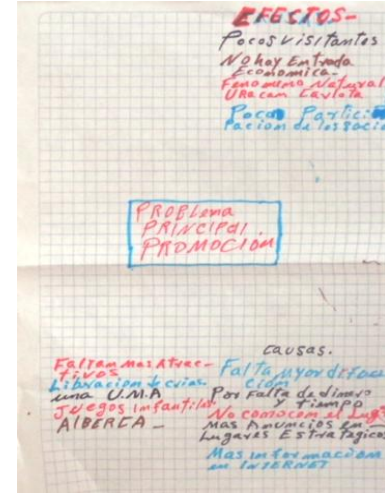 EFECTOS-
Pocos visitantes
No hay Entrada
Economica-
Fenomeno Natural
URacan Carlota
Poca Partici
pacion de los socio
PROBLema
PRINCIPAL.
PROMOCION
causas.
Faltan mas Atrac-
tivos
Libracion de crias
una U.M.A
Juegos Infantiles
AlBERCA-
Falta Mayor difuc
cion
Por Falta de dinero
y tiempo
No conocen el Lug
Mas Anuncios en
Lugares Estrategicos
Mas informacion
en INTERNET